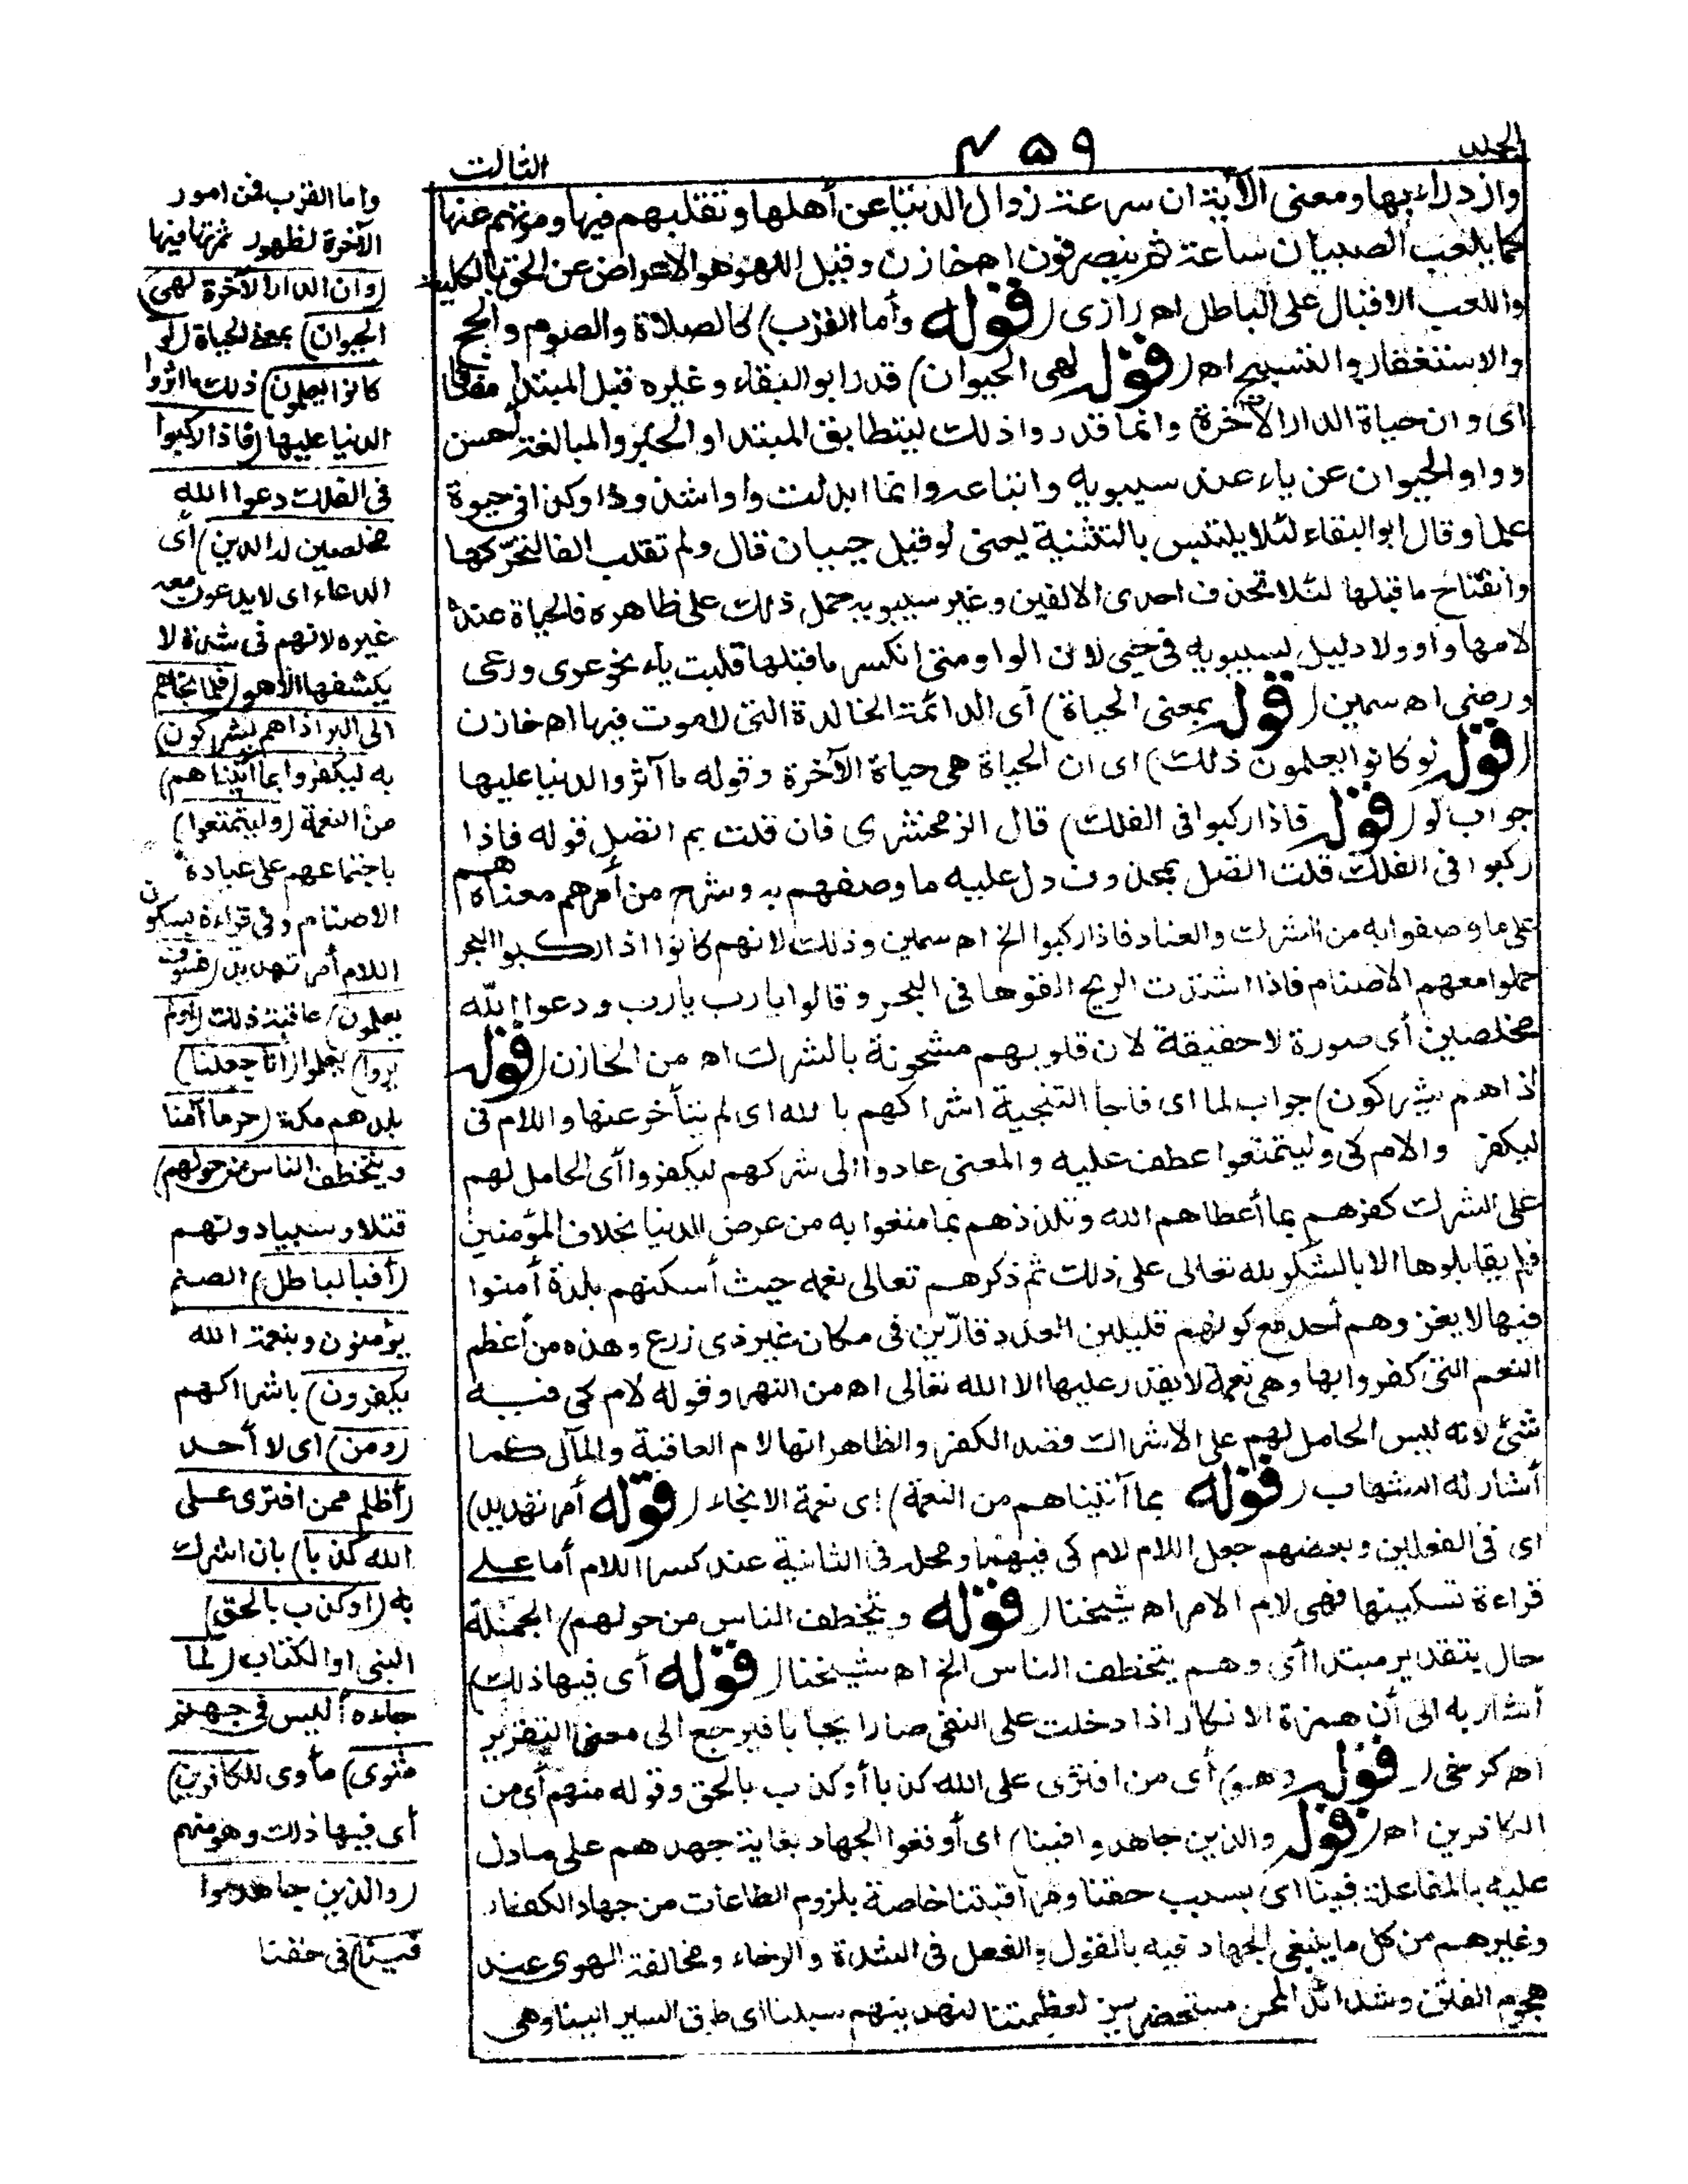 الجلد
٤٥٩
الثالث
وازدراء بها ومعنى الآية ان سرعة زوال الدنيا عن أهلها وتقلبهم فيها وموتهم عنها
كما يلعب الصبيان ساعة ثم ينصرفون اه خازن وقيل اللهو هو الاعراض عن الحق بالكلية
واللعب الاقبال على الباطل اه رازى (قوله وأما القرب) كالصلاة والصوم والحج
والاستغفار والتسبيح اه (قوله لهى الحيوان) قدر ابو البقاء وغيره قبل المبتدا مضافا
اى وان حياة الدار الآخرة وانما قدروا ذلك ليتطابق المبتدا والخبر والمبالغة أحسن
وواو الحيوان عن ياء عند سيبويه واتباعه وانما ابدلت واوا شذوذا وكذا فى حيوة
علما وقال ابو البقاء لئلا يلتبس بالتثنية يعنى لو قيل حييان قال ولم تقلب الفا لتحركها
وانفتاح ما قبلها لئلا تحذف احدى الالفين وغير سيبويه حمل ذلك على ظاهره فالحياة عنده
لامها واو ولا دليل لسيبويه فى حيى لان الواو متى انكسر ما قبلها قلبت ياء نحو عرى ورعى
ورضى اه سمين (قوله بمعنى الحياة) أى الدائمة الخالدة التى لا موت فيها اه خازن
(قوله لو كانوا يعلمون ذلك) اى ان الحياة هى حياة الآخرة وقوله ما آثروا الدنيا عليها
جواب لو (قوله فاذا ركبوا فى الفلك) قال الزمخشرى فان قلت بم اتصل قوله فاذا
ركبوا فى الفلك قلت اتصل بمحذوف دل عليه ما وصفهم به وشرح من أمرهم معناه هم
على ما وصفوا به من الشرك والعناد فاذا ركبوا الخ اه سمين وذلك لانهم كانوا اذا ركبوا البحر
حملوا معهم الاصنام فاذا اشتدت الريح القوها فى البحر وقالوا يا رب يا رب ودعوا الله
مخلصين أى صورة لا حقيقة لان قلوبهم مشحونة بالشرك اه من الخازن (قوله
اذا هم يشركون) جواب لما اى فاجأ التنجية اشراكهم بالله اى لم يتأخر عنها واللام فى
ليكفر والام كى وليتمتعوا عطف عليه والمعنى عادوا الى شركهم ليكفروا أى الحامل لهم
على الشرك كفرهم بما أعطاهم الله وتلذذهم بما متعوا به من عرض الدنيا بخلاف المؤمنين
فلم يقابلوها الا بالشكر لله تعالى على ذلك ثم ذكرهم تعالى نعمه حيث أسكنهم بلدة أمنوا
فيها لا يغزوهم أحد مع كونهم قليلين العدد قارّين فى مكان غير ذى زرع وهذه من أعظم
النعم التى كفروا بها وهى نعمة لا يقدر عليها الا الله تعالى اه من النهر وقوله لام كى فيه
شئ لانه ليس الحامل لهم على الاشراك قصد الكفر والظاهر انها لام العاقبة والمآل كما
أشار له الشهاب (قوله بما آتيناهم من النعمة) اى نعمة الانجاء (قوله أمر تهديد)
اى فى الفعلين وبعضهم جعل اللام لام كى فيهما ومحله فى الثانية عند كسر اللام أما على
قراءة تسكينها فهى لام الامر اه شيخنا (قوله ويتخطف الناس من حولهم) الجملة
حال بتقدير مبتدا أى وهم يتخطف الناس الخ اه شيخنا (قوله أى فيها ذلك)
أشار به الى أن همزة الانكار اذا دخلت على النفى صار ايجابا فيرجع الى معنى التقرير
اه كرخى (قوله وهو) أى من افترى على الله كذبا أو كذب بالحق وقوله منهم أى من
الكافرين اه (قوله والذين جاهدوا فينا) اى أوقعوا الجهاد بغاية جهدهم على ما دل
عليه بالمفاعلة فينا اى بسبب حقنا ومراقبتنا خاصة بلزوم الطاعات من جهاد الكفار
وغيرهم من كل ما ينبغى الجهاد فيه بالقول والفعل فى الشدة والرخاء ومخالفة الهوى عند
هجوم الفتن وشدائد المحن مستحضرين لعظمتنا لنهدينهم سبلنا اى طرق السير الينا وهى
واما القرب فمن امور
الآخرة لظهور ثمرتها فيها
(وان الدار الآخرة لهى
الحيوان) بمعنى الحياة (لو
كانوا يعلمون) ذلك ما اثروا
الدنيا عليها (فاذا ركبوا
فى الفلك دعوا الله
مخلصين له الدين) أى
الدعاء اى لا يدعون معه
غيره لانهم فى شدة لا
يكشفها الا هو (فلما نجاهم
الى البر اذا هم يشركون)
به ليكفروا بما آتيناهم)
من النعمة (وليتمتعوا)
باجتماعهم على عبادة
الاصنام وفى قراءة بسكون
اللام أمر تهديد (فسوف
يعلمون) عاقبة ذلك (أولم
يروا) يعلموا (أنا جعلنا)
بلدهم مكة (حرما آمنا
ويتخطف الناس من حولهم)
قتلا وسبيا دونهم
(أفبالباطل) الصنم
يؤمنون وبنعمة الله
يكفرون) باشراكهم
(ومن) اى لا أحد
(أظلم ممن افترى على
الله كذبا) بان اشرك
به (او كذب بالحق)
النبى او الكتاب (لما
جاءه أليس فى جهنم
مثوى) مأوى للكافرين)
أى فيها ذلك وهو منهم
(والذين جاهدوا
فينا) فى حقنا